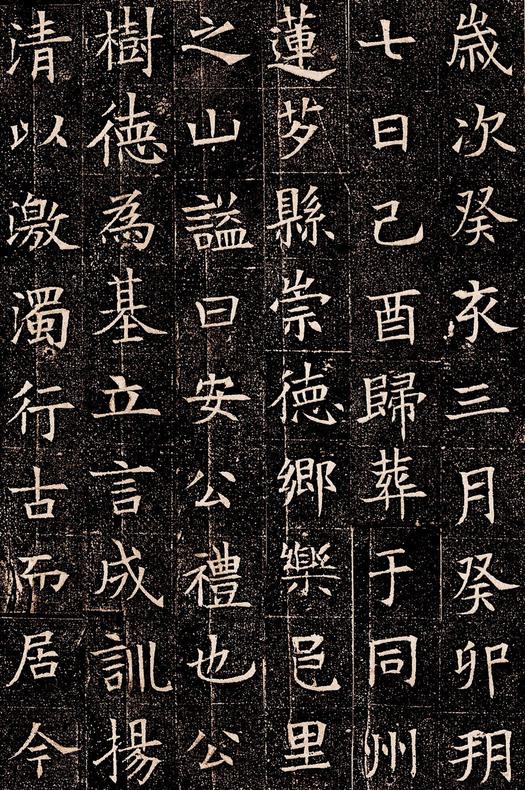 歲次癸亥三月癸卯朔
七日己酉歸葬于同州
蓮芍縣崇德鄉樂邑里
之山謚曰安公禮也公
樹德為基立言成訓揚
清以激濁行古而居今